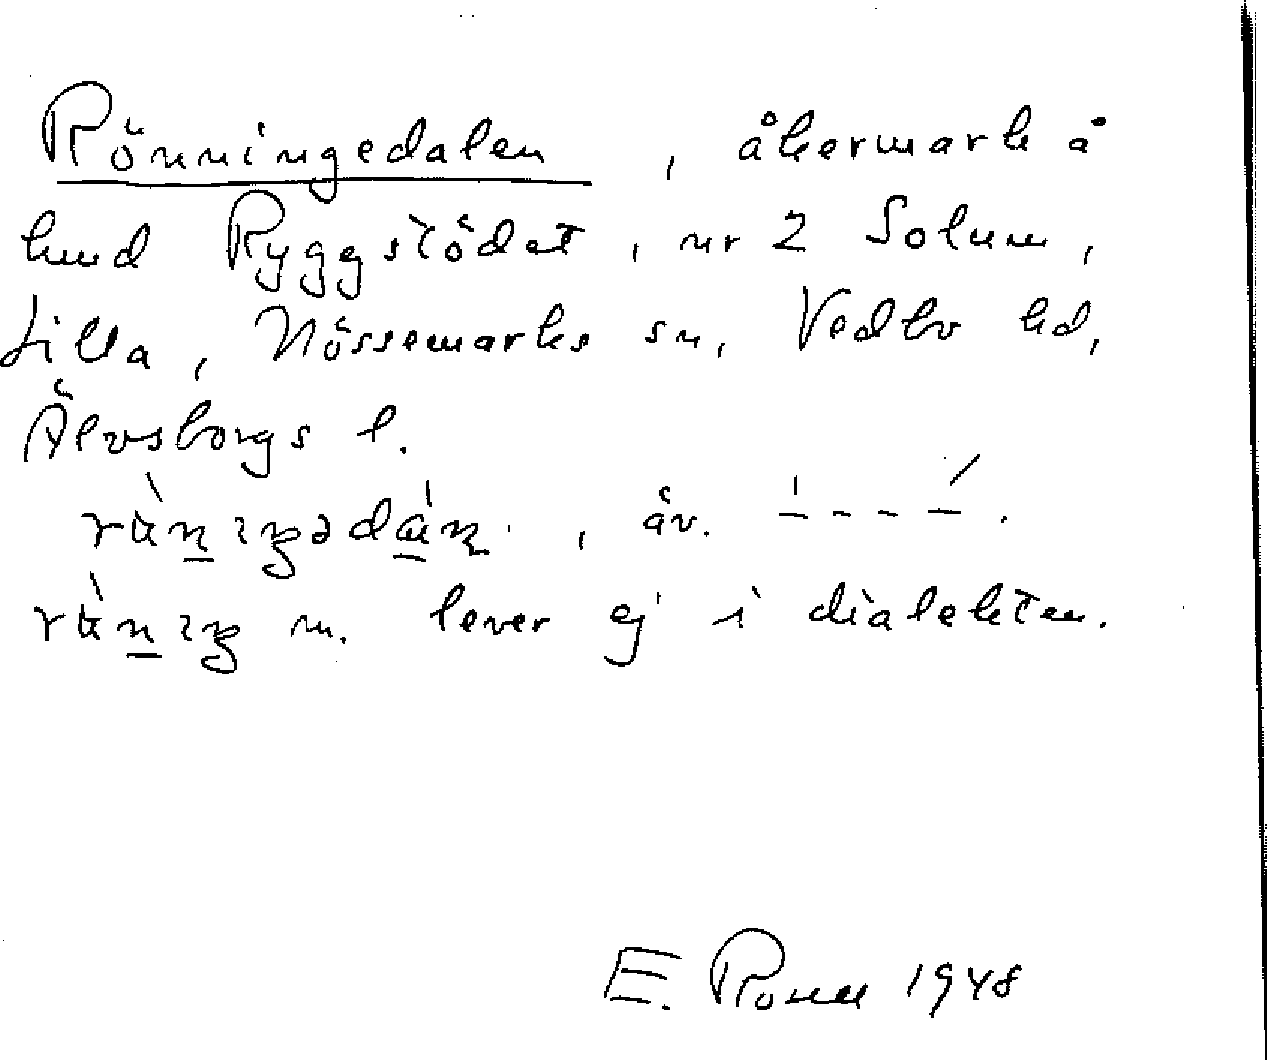 Rönningedalen, åkermark å
hmd Ryggstödet, nr 2 Solum,
Lilla, Nössemarks sn, Vedbo hd,
Älvsborgs l.
äv.
m. lever ej i dialekten.
E. Rome 1948